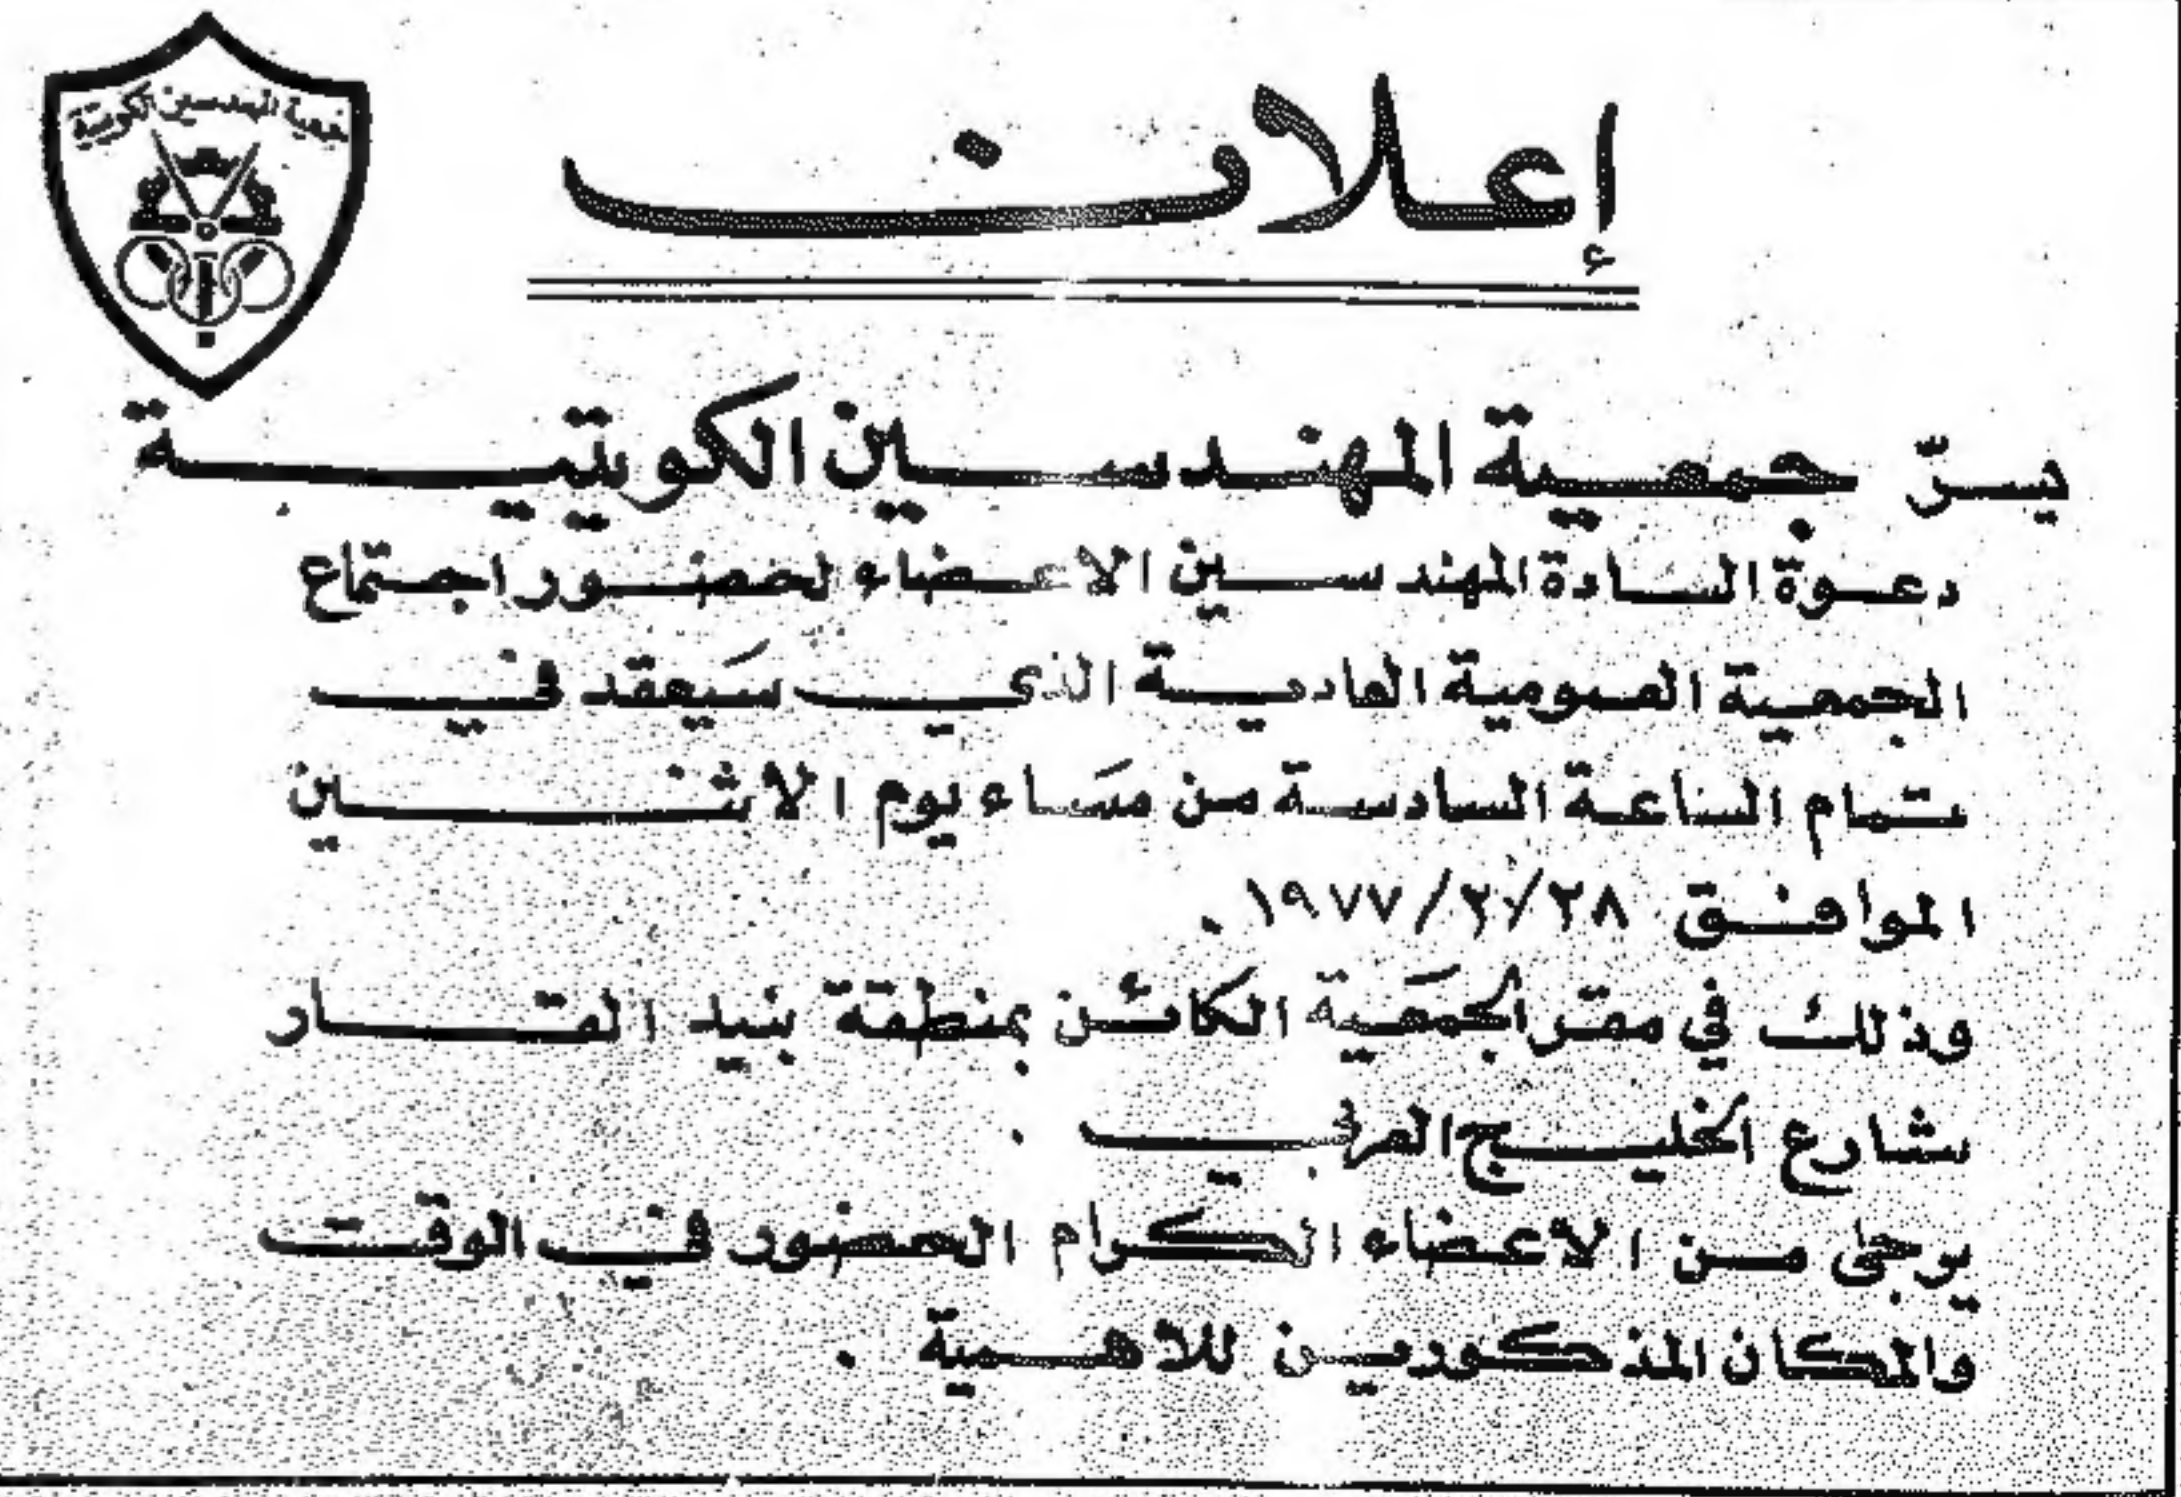 جمعية المهندسين الكويتية
إعلان
يسرّ جمعية المهندسين الكويتية
دعوة السادة المهندسين الاعضاء لحضور اجتماع
الجمعية العمومية العادية الذي سيعقد في
تمام الساعة السادسة من مساء يوم الاثنين
الموافق ٢٨/٢/١٩٧٧ .
وذلك في مقر الجمعية الكائن بمنطقة بنيد القار
شارع الخليج العربي .
يرجى من الاعضاء الكرام الحضور في الوقت
والمكان المذكورين للاهمية .